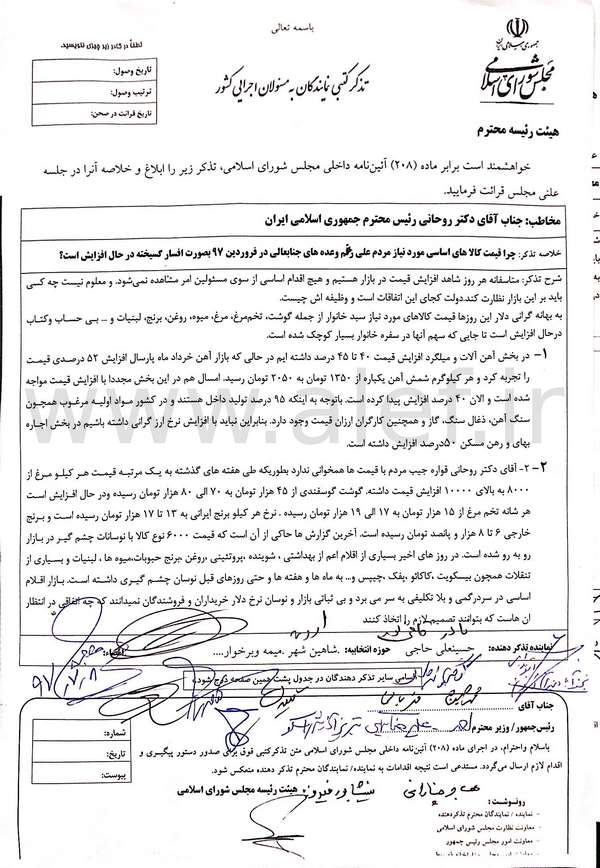 باسمه تعالی
جمهوری اسلامی ایران
مجلس شورای اسلامی
لطفاً در کادر زیر چیزی ننویسید.
تاریخ وصول:
ترتیب وصول:
تاریخ قرائت در صحن:
تذکر کتبی نمایندگان به مسئولان اجرایی کشور
هیئت رئیسه محترم
خواهشمند است برابر ماده (۲۰۸) آئین‌نامه داخلی مجلس شورای اسلامی، تذکر زیر را ابلاغ و خلاصه آنرا در جلسه
علنی مجلس قرائت فرمایید.
مخاطب: جناب آقای دکتر روحانی رئیس محترم جمهوری اسلامی ایران
خلاصه تذکر: چرا قیمت کالا های اساسی مورد نیاز مردم علی رغم وعده های جنابعالی در فروردین ۹۷ بصورت افسار گسیخته در حال افزایش است؟
شرح تذکر: متاسفانه هر روز شاهد افزایش قیمت در بازار هستیم و هیچ اقدام اساسی از سوی مسئولین امر مشاهده نمی‌شود. و معلوم نیست چه کسی
باید بر این بازار نظارت کند.دولت کجای این اتفاقات است و وظیفه اش چیست.
به بهانه گرانی دلار این روزها قیمت کالاهای مورد نیاز سبد خانوار از جمله گوشت، تخم‌مرغ، مرغ، میوه، روغن، برنج، لبنیات و ... بی حساب وکتاب
درحال افزایش است تا جایی که سهم آنها در سفره خانوار بسیار کوچک شده است.
۱- در بخش آهن آلات و میلگرد افزایش قیمت ۴۰ تا ۴۵ درصد داشته ایم در حالی که بازار آهن خرداد ماه پارسال افزایش ۵۲ درصدی قیمت
را تجربه کرد و هر کیلوگرم شمش آهن یکباره از ۱۳۵۰ تومان به ۲۰۵۰ تومان رسید. امسال هم در این بخش مجددا با افزایش قیمت مواجه
شده است و الان ۴۰ درصد افزایش پیدا کرده است. باتوجه به اینکه ۹۵ درصد تولید داخل هستند و در کشور مواد اولیه مرغوب همچون
سنگ آهن، ذغال سنگ، گاز و همچنین کارگران ارزان قیمت وجود دارد. بنابراین نباید با افزایش نرخ ارز گرانی داشته باشیم در بخش اجاره
بهای و رهن مسکن ۵۰درصد افزایش داشته است.
۲- ۲- آقای دکتر روحانی قواره جیب مردم با قیمت ها همخوانی ندارد بطوریکه طی هفته های گذشته به یک مرتبه قیمت هر کیلو مرغ از
۸۰۰۰ به بالای ۱۰۰۰۰ افزایش قیمت داشته. گوشت گوسفندی از ۴۵ هزار تومان به ۷۰ الی ۸۰ هزار تومان رسیده ودر حال افزایش است
هر شانه تخم مرغ از ۱۵ هزار تومان به ۱۷ الی ۱۹ هزار تومان رسیده . نرخ هر کیلو برنج ایرانی به ۱۳ تا ۱۷ هزار تومان رسیده و برنج
خارجی ۶ تا ۸ هزار و پانصد تومان رسیده است. آخرین گزارش ها حاکی از آن است که قیمت ۶۰۰۰ نوع کالا با نوسانات چشم گیر در بازار
رو به رو شده است. در روز های اخیر بسیاری از اقلام اعم از بهداشتی ، شوینده ،پروتئینی ،روغن ،برنج حبوبات،میوه ها ، لبنیات و بسیاری از
تنقلات همچون بیسکویت ،کاکائو ،پفک ،چیپس و... به ماه ها و هفته ها و حتی روزهای قبل نوسان چشم گیری داشته است. بازار اقلام
اساسی در سردرگمی و بلا تکلیفی به سر می برد و بی ثباتی بازار و نوسان نرخ دلار خریداران و فروشندگان نمیدانند که چه اتفاقی در انتظار
آن هاست که بتوانند تصمیم لازم را اتخاذ کنند
نماینده تذکر دهنده: حسینعلی حاجی حوزه انتخابیه: شاهین شهر .میمه وبرخوار.... امضاء:
۹۷/۷/۸
اسامی سایر تذکر دهندگان در جدول پشت همین صفحه درج شود.
جناب آقای
رئیس‌جمهور/ وزیر محترم
شماره:
تاریخ:
پیوست:
باسلام واحترام، در اجرای ماده (۲۰۸) آئین‌نامه داخلی مجلس شورای اسلامی متن تذکرکتبی فوق برای صدور دستور پیگیری و
اقدام لازم ارسال می‌گردد. مستدعی است نتیجه اقدامات به نماینده/ نمایندگان محترم تذکر دهنده منعکس شود.
هیئت رئیسه مجلس شورای اسلامی
رونوشت:
- نماینده / نمایندگان محترم تذکردهنده
- معاونت نظارت مجلس شورای اسلامی
- معاونت امور مجلس رئیس جمهور
www.alef.ir